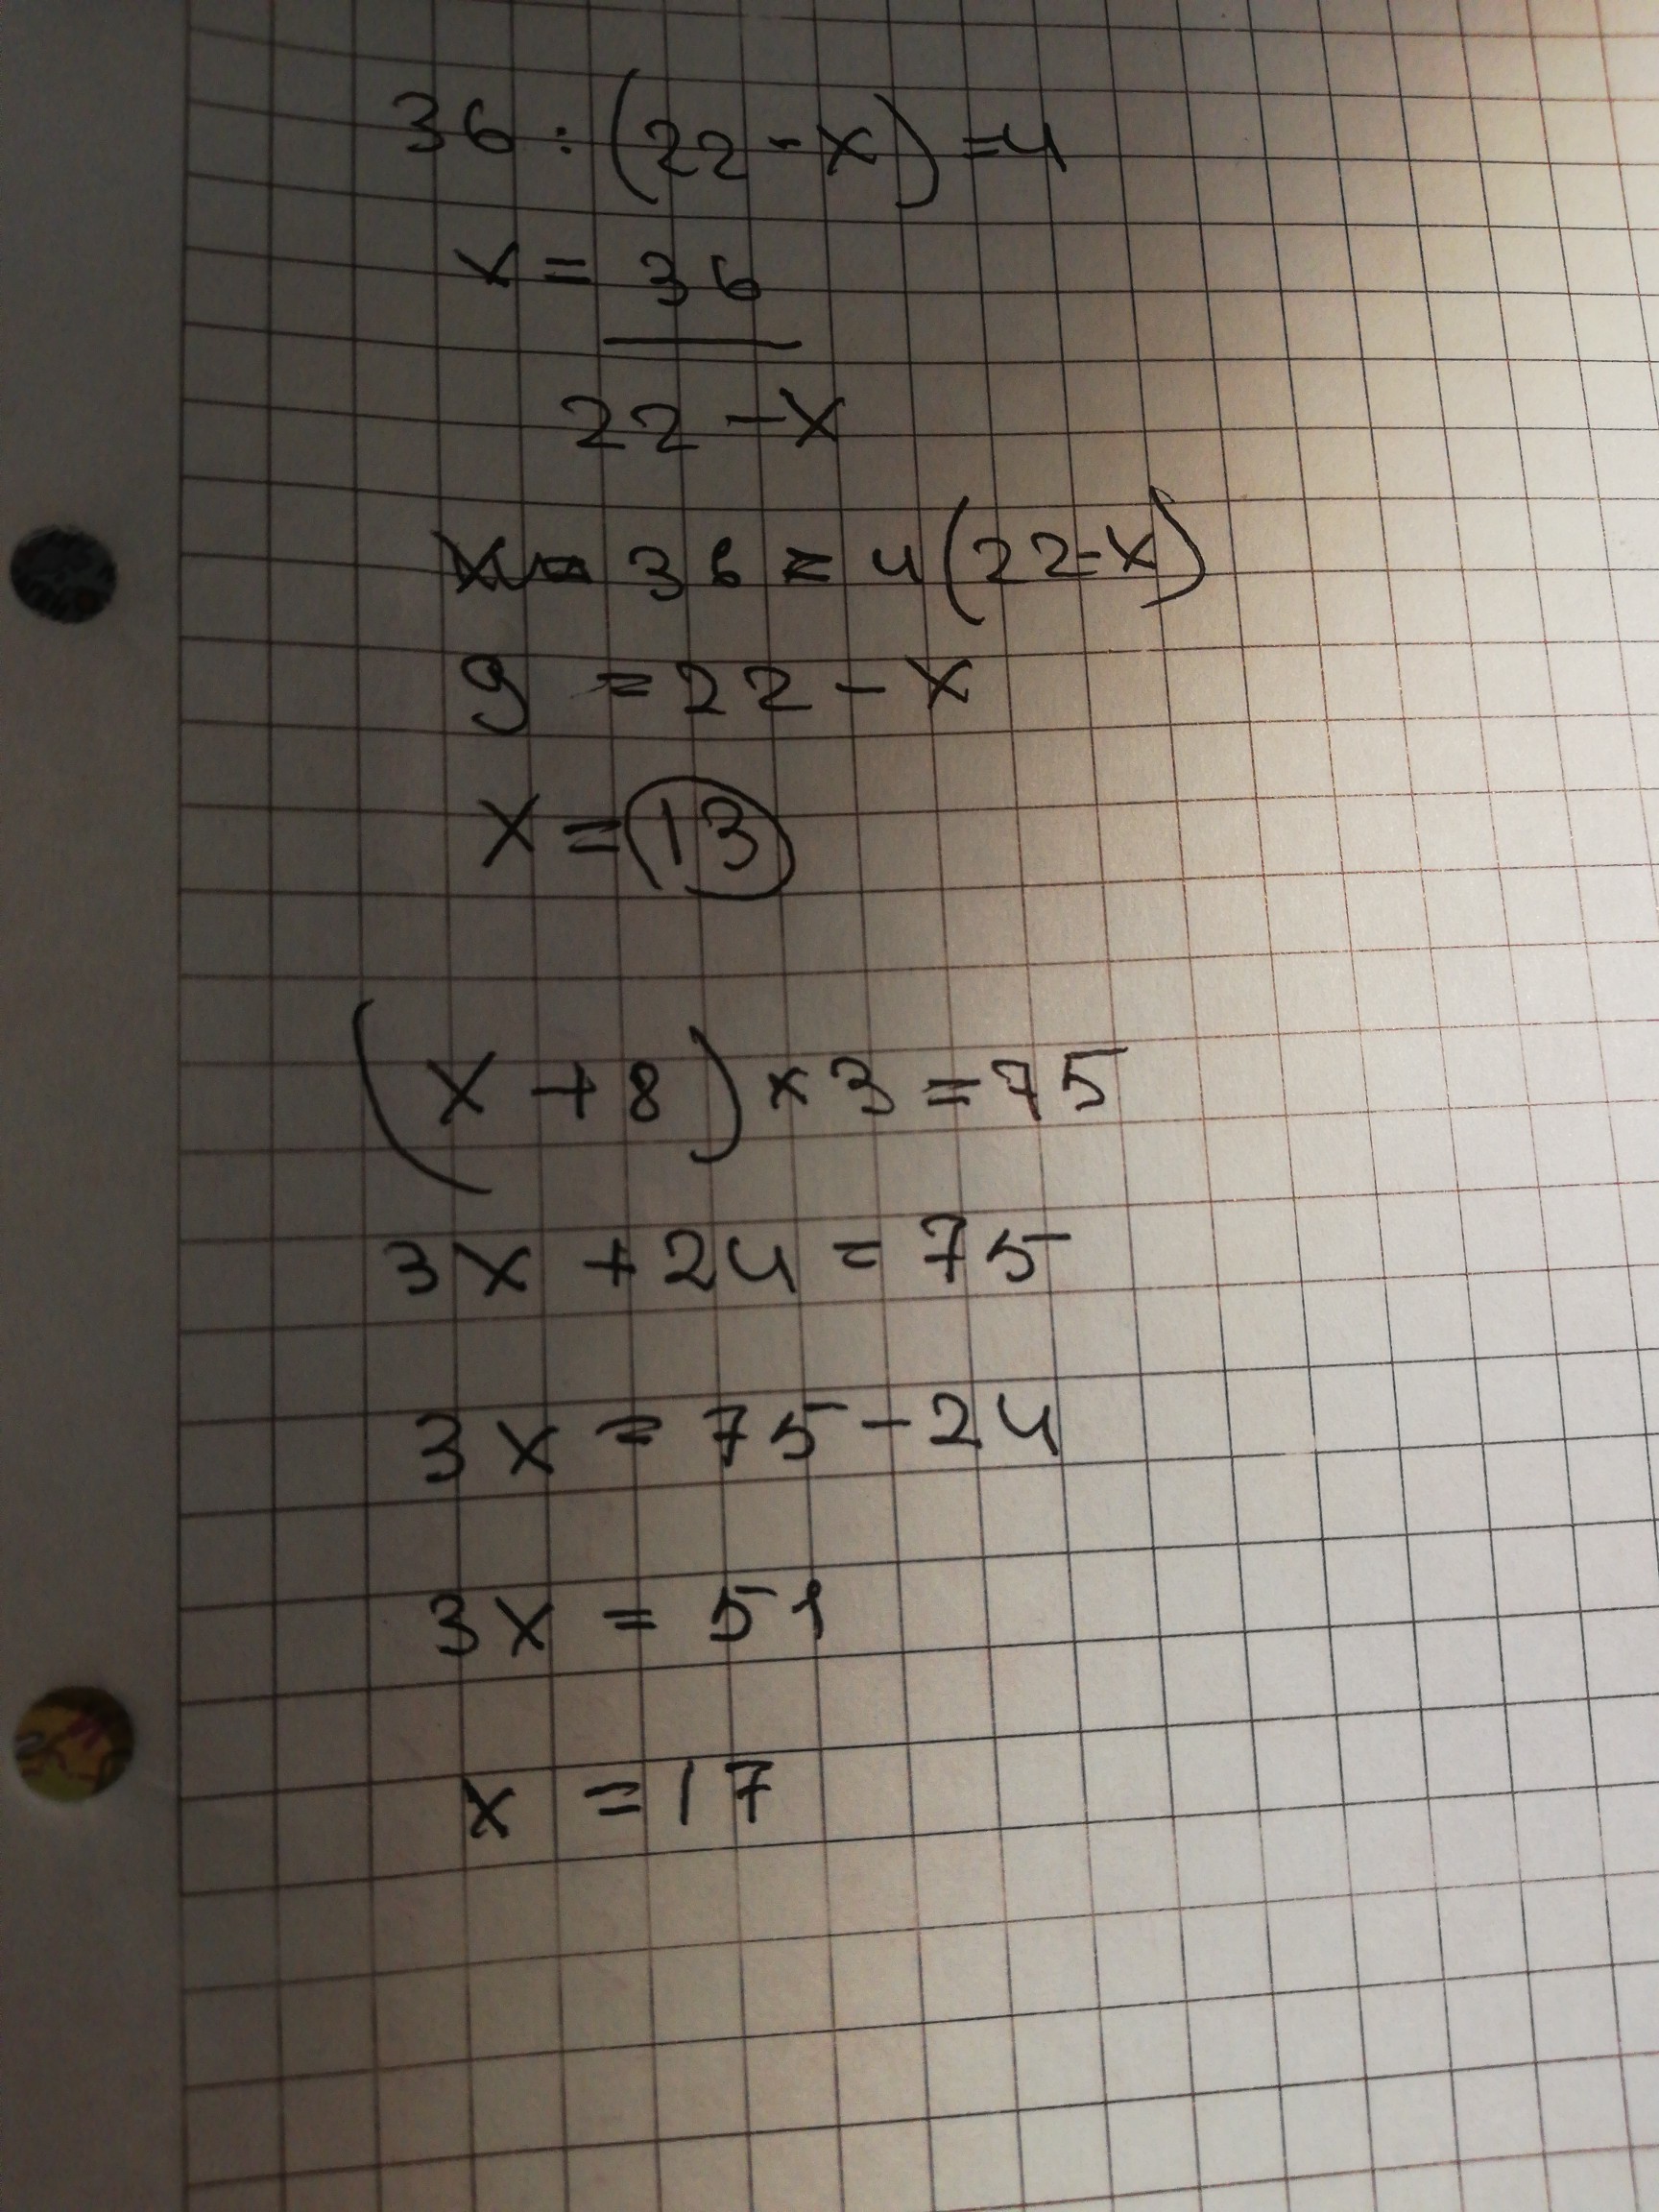 36 : (22 - x) = 4
x = 36
22 - x
36 = 4 (22 - x)
9 = 22 - x
x = 13
(x + 8) x 3 = 75
3x + 24 = 75
3x = 75 - 24
3x = 51
x = 17